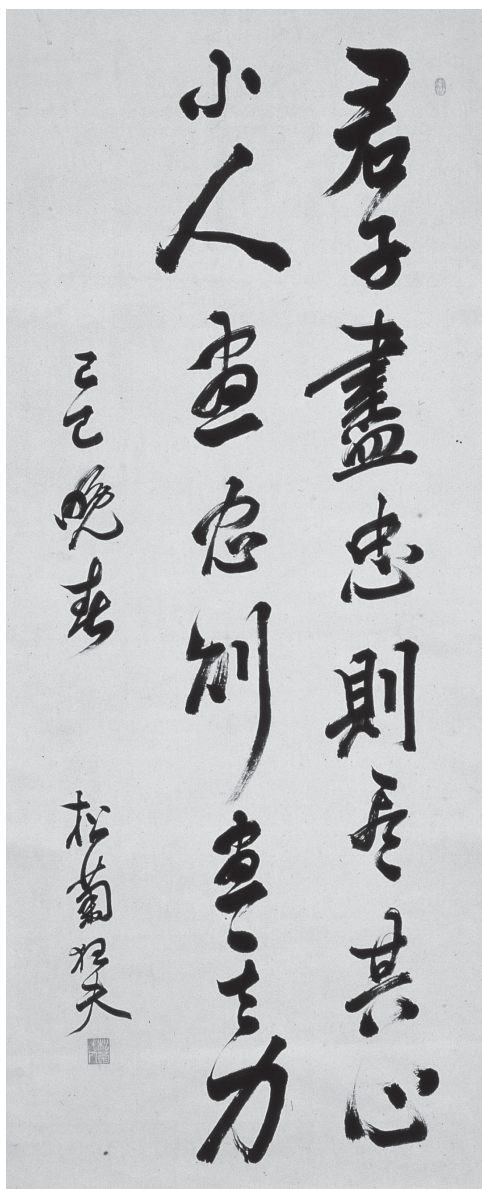 君子盡忠則尽其心
小人盡忠則盡其力
己巳晩春
松菊狂夫